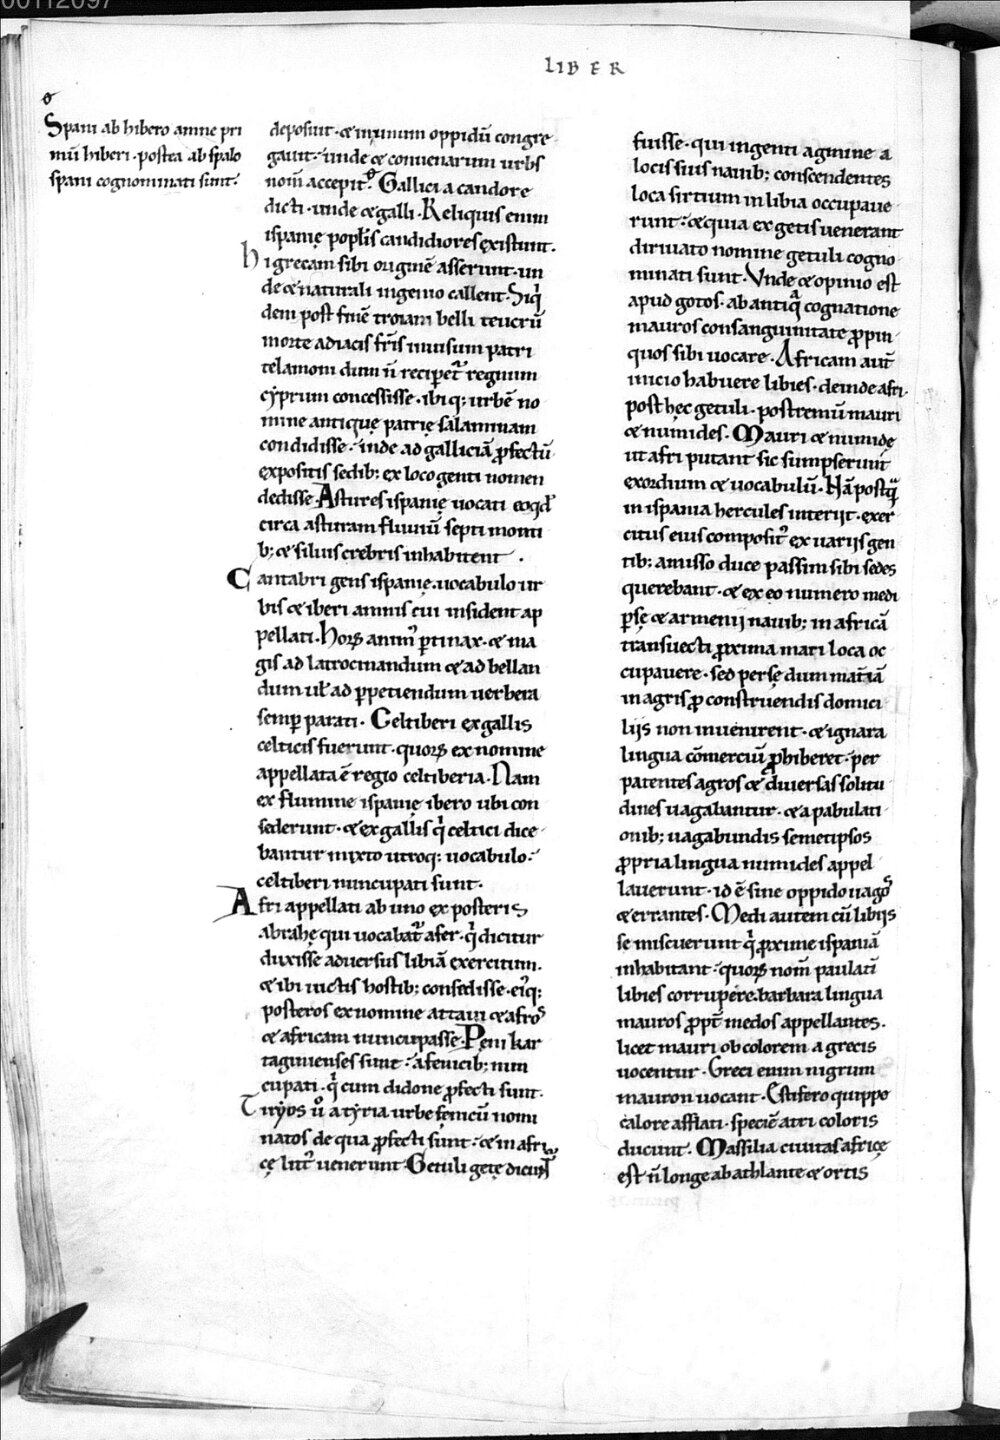 00112097
LIBER
Spani ab hibero amne pri
mū hiberi · postea ab spalo
spani cognominati sunt·
deposuit · & in unum oppidū congre
gauit · unde & conuenarum urbs
nom̄ accepit. Gallici a candore
dicti · unde & galli · Reliquis enim
ispanię poplis candidiores existunt.
hi grecam sibi originē asserunt · un
de & naturali ingenio callent · Siq̇
dem post finē troiani belli teucrū
morte aiacis fr̄is inuisum patri
telamoni dum n̄ reciperet᷒ regnum
cyprum concessisse · ibiq; urbē no
mine antiquę patrię salaminam
condidisse · inde ad galliciā ꝓfectū
expositis sedib; ex loco genti nomen
dedisse. Astures ispanię uocati eoqđ
circa asturam fluuiū septi monti
b; & siluis crebris inhabitent ·
Cantabri gens ispanię · uocabulo ur
bis & iberi amnis cui insident ap
pellati · hoꝝ anim᷒ ꝑtinax · & ma
gis ad latrocinandum & ad bellan
dum uł ad ꝑpetiendum uerbera
semꝑ parati · Celtiberi ex gallis
celticis fuerunt · quoꝝ ex nomine
appellata ē regio celtiberia · Nam
ex flumine ispanię ibero ubi con
sederunt · & ex gallis q̇ celtici dice
bantur mixto utroq; uocabulo ·
celtiberi nuncupati sunt ·
Afri appellati ab uno ex posteris
abrahę qui uocabat᷒ afer · q̇ dicitur
duxisse aduersus libiā exercitum.
& ibi uictis hostib; consedisse · ei᷒q;
posteros ex nomine attaui & afros
& africam nuncupasse. Peni kar
taginienses sunt · a fenicib; nun
cupati · q̇ cum didone ꝓfecti sunt ·
Tiryos ů a tyria urbe fenicū nomi
natos de qua ꝓfecti sunt · & in afri
cę lit᷒ uenerunt. Getuli getę dicunt᷒
fuisse · qui ingenti agmine a
locis suis nauib; conscendentes
loca sirtium in libia occupaue
runt · & quia ex getis uenerant
diriuato nomine getuli cogno
minati sunt · Vnde & opinio est
apud gotos · ab antiqᵃ cognatione
mauros consanguinitate ꝓpin
quos sibi uocare · Africam aut̄
inicio habuere libies · deinde afri ·
post hęc getuli · postremū mauri
& numides · Mauri & numidę
ut afri putant sic sumpserunt
exordium & uocabulū · Nā postqᵃ
in ispania hercules interiit · exer
citus eius composit᷒ ex uariis gen
tib; amisso duce passim sibi sedes
querebant · & ex eo numero medi
ꝑsę & armenii nauib; in africā
transuecti ꝓxima mari loca oc
cupauere · sed persę dum mat̄iā
in agris ꝓ construendis domici
liis non inuenirent · & ignara
lingua cōmerciū ꝓhiberet · per
patentes agros & diuersas solitu
dines uagabantur · & a pabulati
onib; uagabundis semetipsos
ꝓpria lingua numides appel
lauerunt · id ē sine oppido uagos
& errantes · Medi autem cū libiis
se miscuerunt q̇ ꝓxime ispaniā
inhabitant · quoꝝ nom̄ paulatī
libies corrupere. barbara lingua
mauros ꝓpt̄ medos appellantes.
licet mauri ob colorem a grecis
uocentur · Greci enim nigrum
mauron uocant · Estifero quippe
calore afflati · speciē atri coloris
ducunt · Massilia ciuitas africę
est n̄ longe ab athlante & ortis